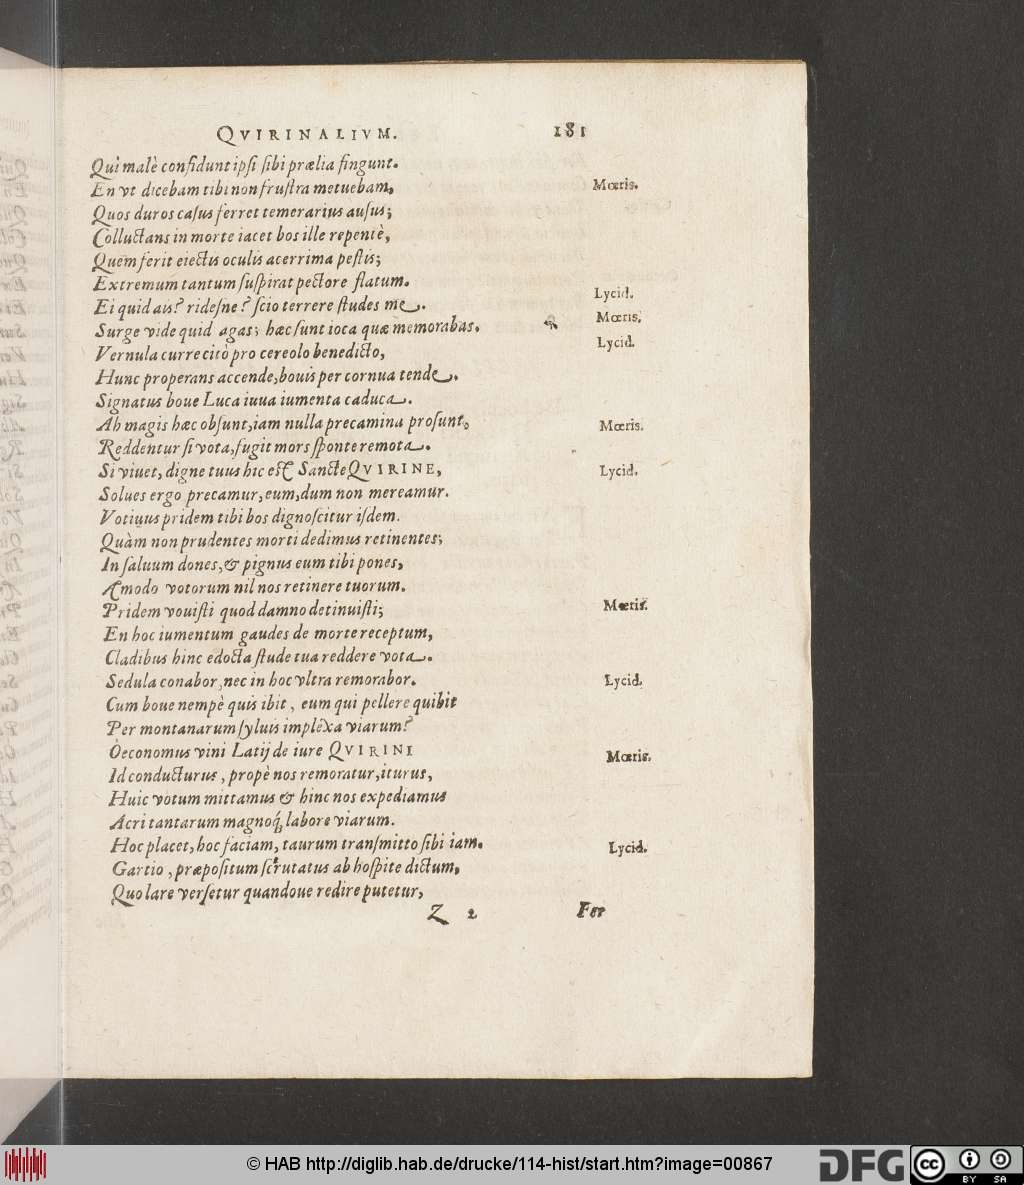 QVIRINALIVM. 181
Qui malè confidunt ipsi sibi prælia fingunt.
En vt dicebam tibi non frustra metuebam, Mœris.
Quos duros casus ferret temerarius ausus;
Colluctans in morte iacet bos ille repentè,
Quem ferit eiectis oculis acerrima pestis;
Extremum tantum suspirat pectore flatum.
Ei quid ais? ridesne? scio terrere studes me. Lycid.
Surge vide quid agas; hæc sunt ioca quæ memorabas. Mœris.
Vernula curre citò pro cereolo benedicto, Lycid.
Hunc properans accende, bouis per cornua tende.
Signatus boue Luca iuua iumenta caduca.
Ah magis hæc obsunt, iam nulla precamina prosunt. Mœris.
Reddentur si vota, fugit mors sponte remota.
Si viuet, digne tuus hic est Sancte QVIRINE, Lycid.
Solues ergo precamur, eum, dum non mereamur.
Votiuus pridem tibi bos dignoscitur isdem.
Quàm non prudentes morti dedimus retinentes;
In saluum dones, & pignus eum tibi pones,
Æmodo votorum nil nos retinere tuorum.
Pridem vouisti quod damno detinuisti; Mœris.
En hoc iumentum gaudes de morte receptum,
Cladibus hinc edocta stude tua reddere vota.
Sedula conabor, nec in hoc vltra remorabor. Lycid.
Cum boue nempè quis ibit, eum qui pellere quibit
Per montanarum syluis implexa viarum?
Oeconomus vini Latij de iure QVIRINI Mœris.
Id conducturus, propè nos remoratur, iturus,
Huic votum mittamus & hinc nos expediamus
Acri tantarum magnoq́ labore viarum.
Hoc placet, hoc faciam, taurum transmitto sibi iam. Lycid.
Gartio, præpositum scrutatus ab hospite dictum,
Quo lare versetur quandoue redire putetur,
Z 2 Fer
© HAB http://diglib.hab.de/drucke/114-hist/start.htm?image=00867
DFG
cc
BY SA